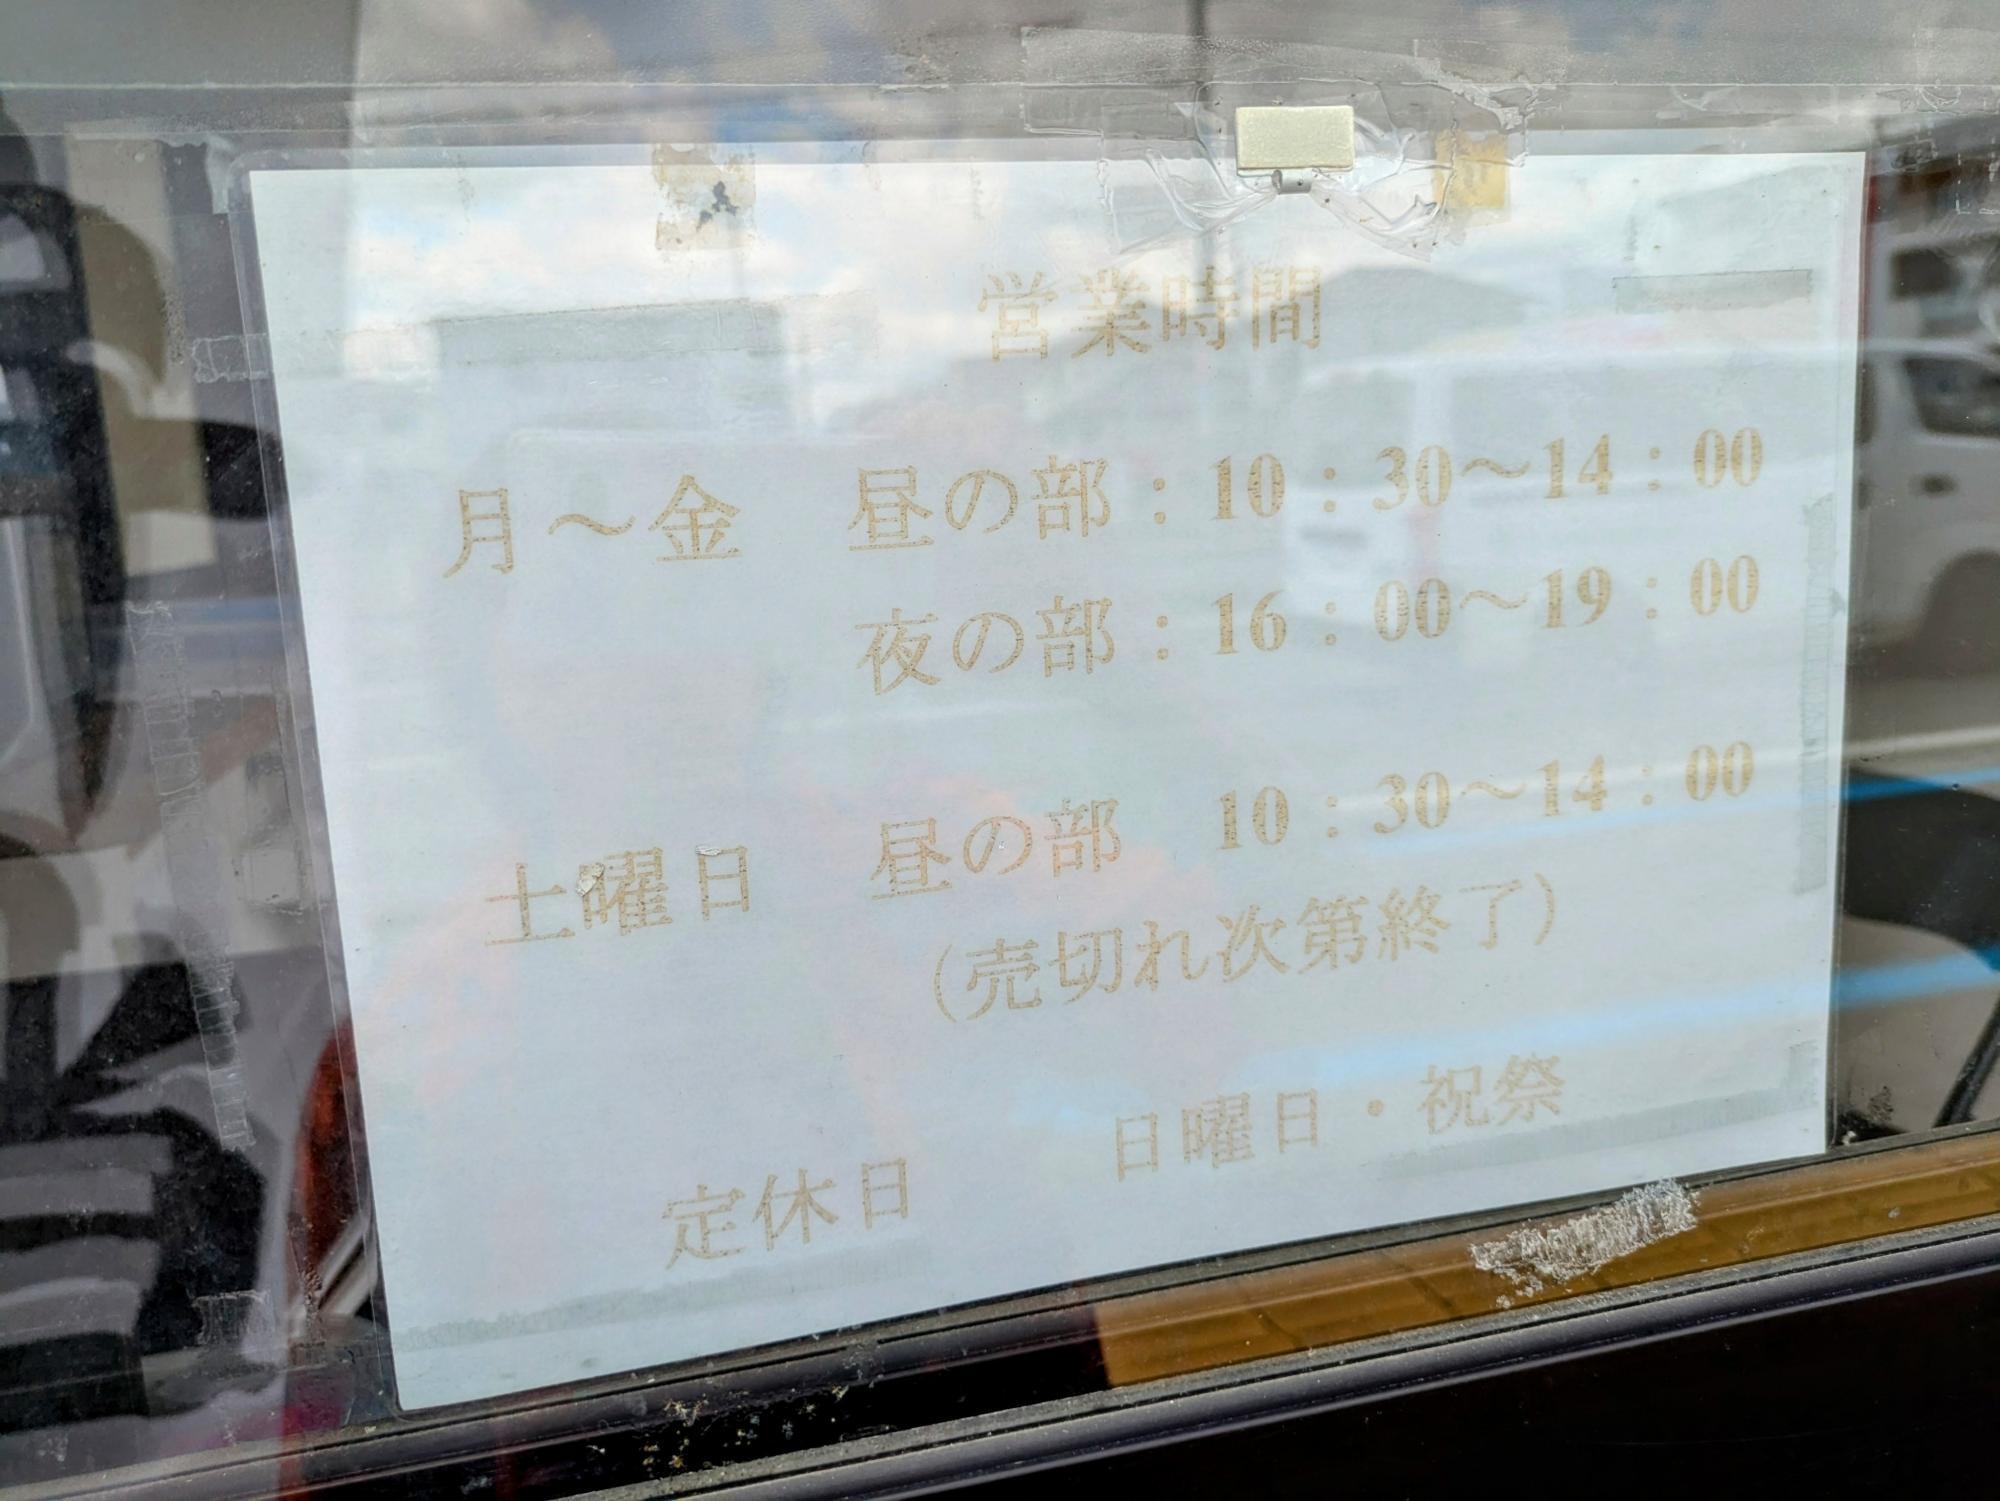 営業時間
月～金　昼の部：10：30～14：00
夜の部：16：00～19：00
土曜日　昼の部　10：30～14：00
（売切れ次第終了）
定休日　日曜日・祝祭